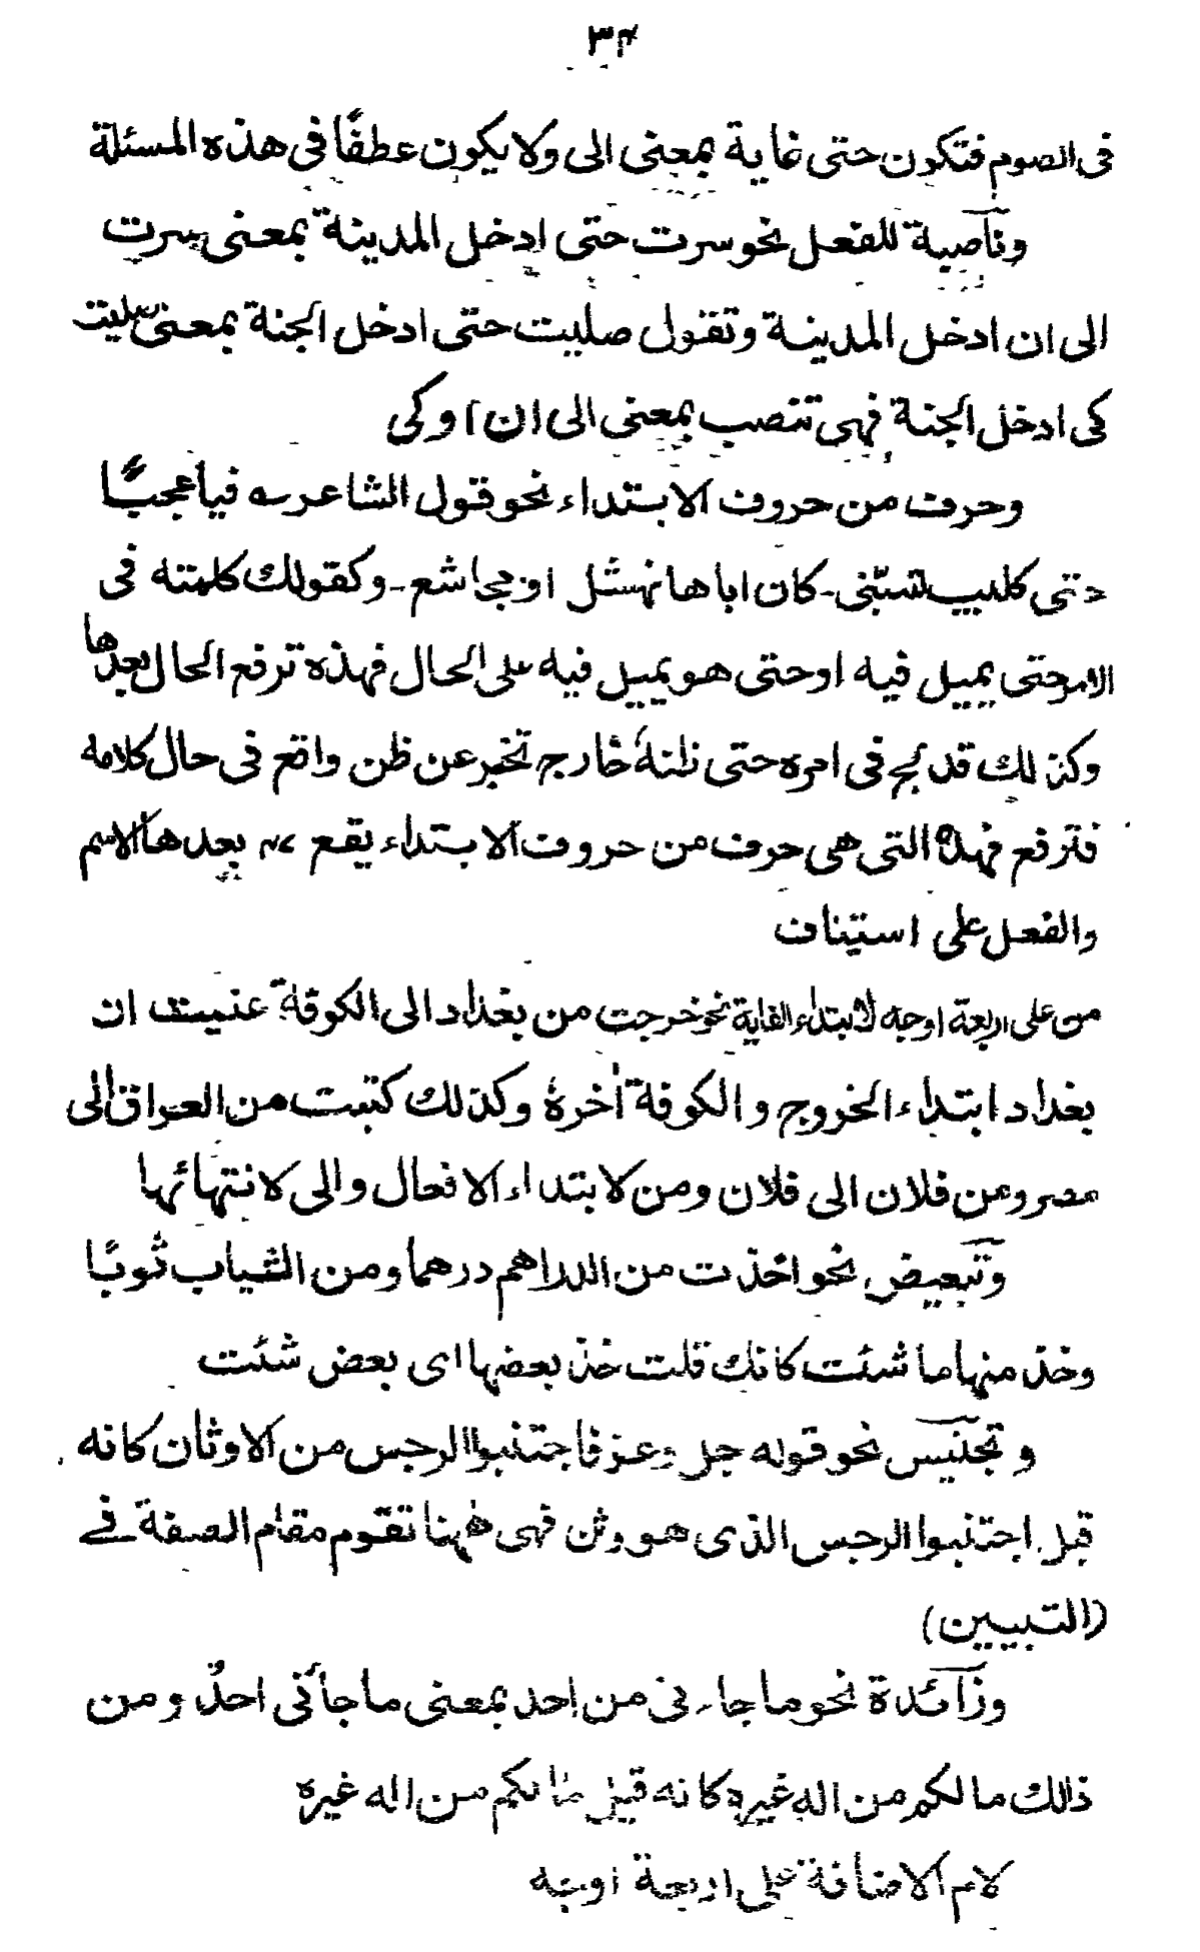 ٣٤
فى الصوم فتكون حتى غاية بمعنى الى ولا يكون عطفًا فى هذه المسئلة
وناصبة للفعل نحو سرت حتى ادخل المدينة بمعنى سرت
الى ان ادخل المدينة وتقول صليت حتى ادخل الجنة بمعنى صليت
كى ادخل الجنة فهى تنصب بمعنى الى ان او كى
وحرف من حروف الابتداء نحو قول الشاعر سه فيا عجبًا
حتى كليب تسبّنى - كان اباها نهشل او مجاشع - وكقولك كلمته فى
الامر حتى يميل فيه او حتى هو يميل فيه على الحال فهذه ترفع الحال بعدها
وكذلك قد لج فى امره حتى تظنهٗ خارج تخبر عن ظن واقع فى حال كلامه
فترفع فهذه التى هى حرف من حروف الابتداء يقع بعدها الاسم
والفعل على استيناف
من على اربعة اوجه لابتداء الغاية نحو خرجت من بغداد الى الكوفة عنيت ان
بغداد ابتداء الخروج والكوفة اٰخرهٗ وكذلك كتبت من العراق الى
مصر ومن فلان الى فلان ومن لابتداء الافعال والى لانتهائها
وتبعيض نحو اخذت من الدراهم درهما ومن الثياب ثوبًا
وخذ منها ما شئت كانك قلت خذ بعضها اى بعض شئت
وتجنيس نحو قوله جل وعز فاجتنبوا الرجس من الاوثان كانه
قيل اجتنبوا الرجس الذى هو وثن فهى هٰهنا تقوم مقام الصفة فى
(التبيين)
وزائدة نحو ما جاءنى من احد بمعنى ما جاءنى احدٌ ومن
ذالك ما لكم من اله غيره كانه قيل ما لكم من اله غيره
لام الاضافة على اربعة اوجه